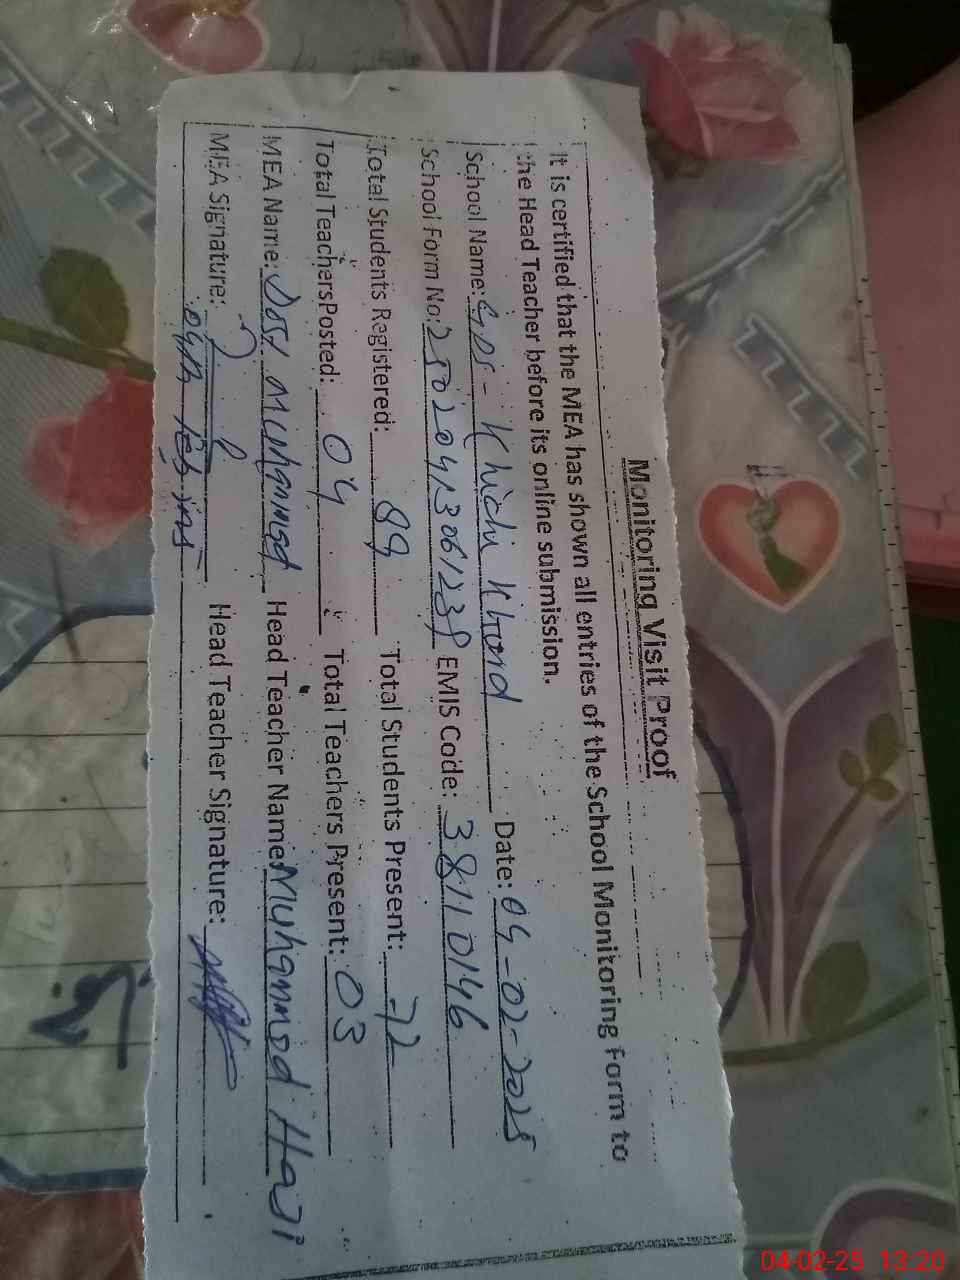 Monitoring Visit Proof
It is certified that the MEA has shown all entries of the School Monitoring Form to
the Head Teacher before its online submission.
School Name: GPS - Khichi Date: 04-02-2025
School Form No: EMIS Code: 38110146
Total Students Registered: 89 Total Students Present: 72
Total Teachers Posted: 04 Total Teachers Present: 03
MEA Name: Dost Muhammad Head Teacher Name: Muhammad Haji
MEA Signature: Head Teacher Signature:
04-02-25 13:20